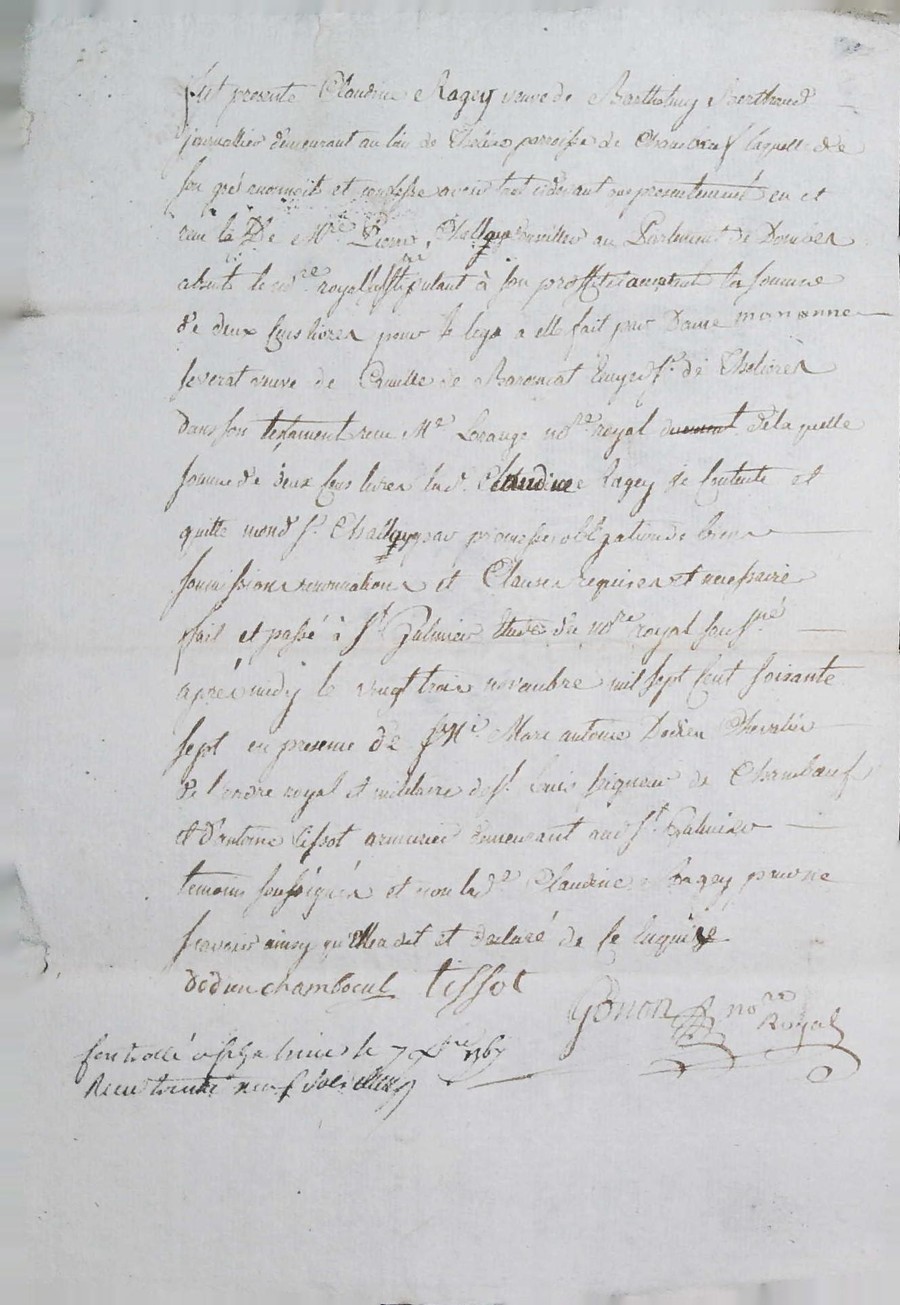 fut presente Claudine Ragey veuve de Barthelmy Berthaud
journallier demeurant au lieu de parroisse de Chambeuf laquelle de
son gré et confesse avoir cidevant que presentement eu et
receu la De Mre Pierre Chelley au Parlement de Dombes
absent le nore royal stipulant à son proffit la somme
de deux Cens livres pour le legs a elle fait par Dame marianne
veuve de Camille de sr. de Tholieres
dans son testament receu Me Lorange nore royal de laquelle
somme de deux Cens livres lad. Claudine Ragey se Contente et
quitte mond sr. par promesse obligation de biens
soumissions renonciations et Clauses requises et necessaire
fait et passé à St Galmier Etude du nore royal sousné
aprés midy le vingt trois novembre mil sept Cent soisante
sept en presence de Mre. Marc antoine Dodieu Chevalier
de l'ordre royal et militaire de st. Louis seigneur de Chambeuf
et d'antoine tissot armurier demeurant aud St. Galmier
temoins soussignés et non lade Claudine Ragey pour ne
scavoir ainsy qu'elle a dit et declaré de ce enquise
dodieu chamboeuf tissot
Gonon nore
Royal
Controllé a le 7 Xbre 1767
Receu trente neuf sols